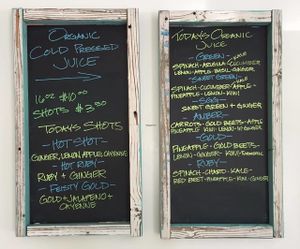 ORGANIC
COLD PRESSED
JUICE
16oz $10.00
SHOTS $3.50
TODAYS SHOTS
- HOT SHOT -
GINGER, LEMON, APPLE, CAYENNE
- HOT RUBY -
RUBY + GINGER
- FEISTY GOLD -
GOLD + JALAPEÑO +
CAYENNE
TODAYS ORGANIC
JUICE
- GREEN -
SPINACH - KALE - CUCUMBER
LEMON - APPLE - BASIL - GINGER
- SWEET GREEN -
SPINACH - CUCUMBER - APPLE -
PINEAPPLE - LEMON - KALE
SWEET GREEN + GINGER
- AMBER -
CARROTS - GOLD BEETS - APPLE
PINEAPPLE - KIWI - LEMON - GINGER
- GOLD -
PINEAPPLE - GOLD BEETS -
LEMON - GINGER - KIWI -
- RUBY -
SPINACH - CHARD - KALE -
RED BEET - PINEAPPLE - KIWI - GINGER